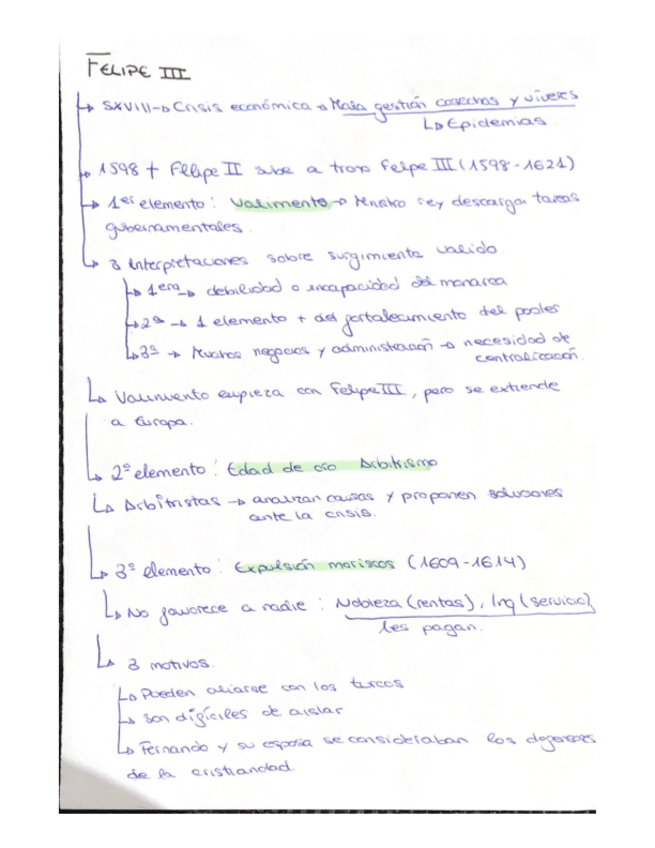 FELIPE III
↳ SXVIII → Crisis económica → Mala gestión cosechas y víveres
↳ Epidemias
↳ 1598 + Felipe II sube a trono Felipe III (1598-1621)
↳ 1er elemento: Valimento → Ministro rey descarga tareas
gubernamentales.
↳ 3 interpretaciones sobre surgimiento valido
↳ 1era → debilidad o incapacidad del monarca
↳ 2ª → 1 elemento + del fortalecimiento del poder
↳ 3ª → Muchos negocios y administración → necesidad de
centralización.
↳ Valimiento empieza con Felipe III, pero se extiende
a Europa.
↳ 2º elemento: Edad de oro Arbitrismo
↳ Arbitristas → analizan causas y proponen soluciones
ante la crisis.
↳ 3º elemento: Expulsión moriscos (1609-1614)
↳ No favorece a nadie: Nobleza (rentas), Inq (servicio)
les pagan.
↳ 3 motivos.
↳ Pueden aliarse con los turcos
↳ Son difíciles de aislar
↳ Fernando y su esposa se consideraban los defensores
de la cristiandad.